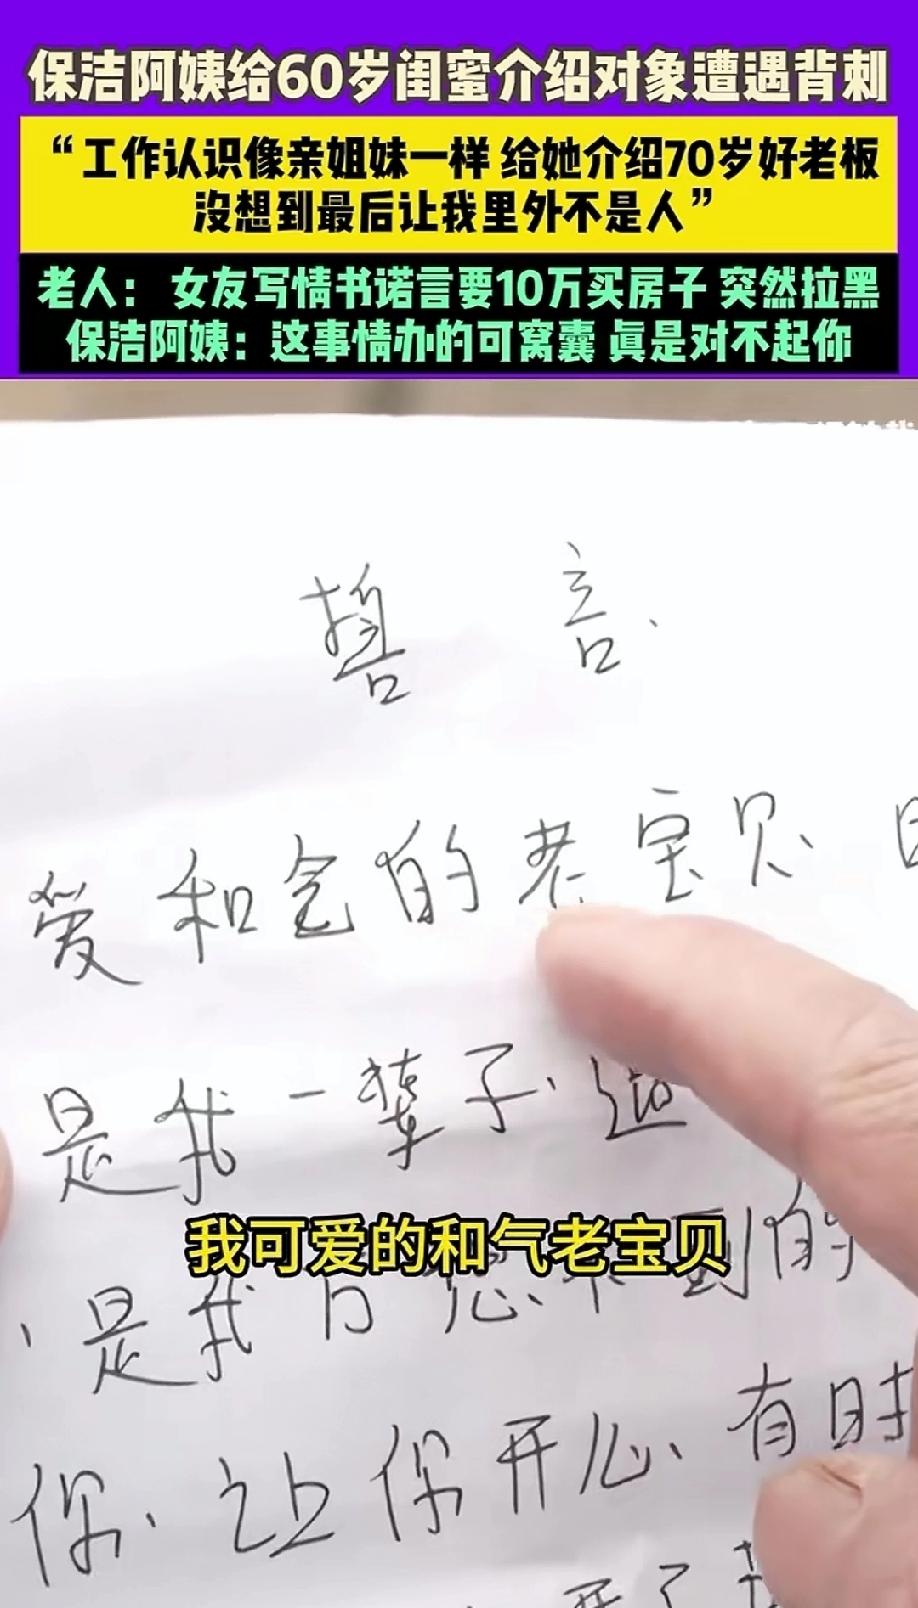 保洁阿姨给60岁闺蜜介绍对象遭遇背刺
“工作认识像亲姐妹一样 给她介绍70岁好老板
没想到最后让我里外不是人”
老人： 女友写情书诺言要10万买房子 突然拉黑
保洁阿姨：这事情办的可窝囊 真是对不起你
言
爱和气的老宝贝
是我一辈子
我可爱的和气老宝贝
是我万想不到的
你、让你开心、有时